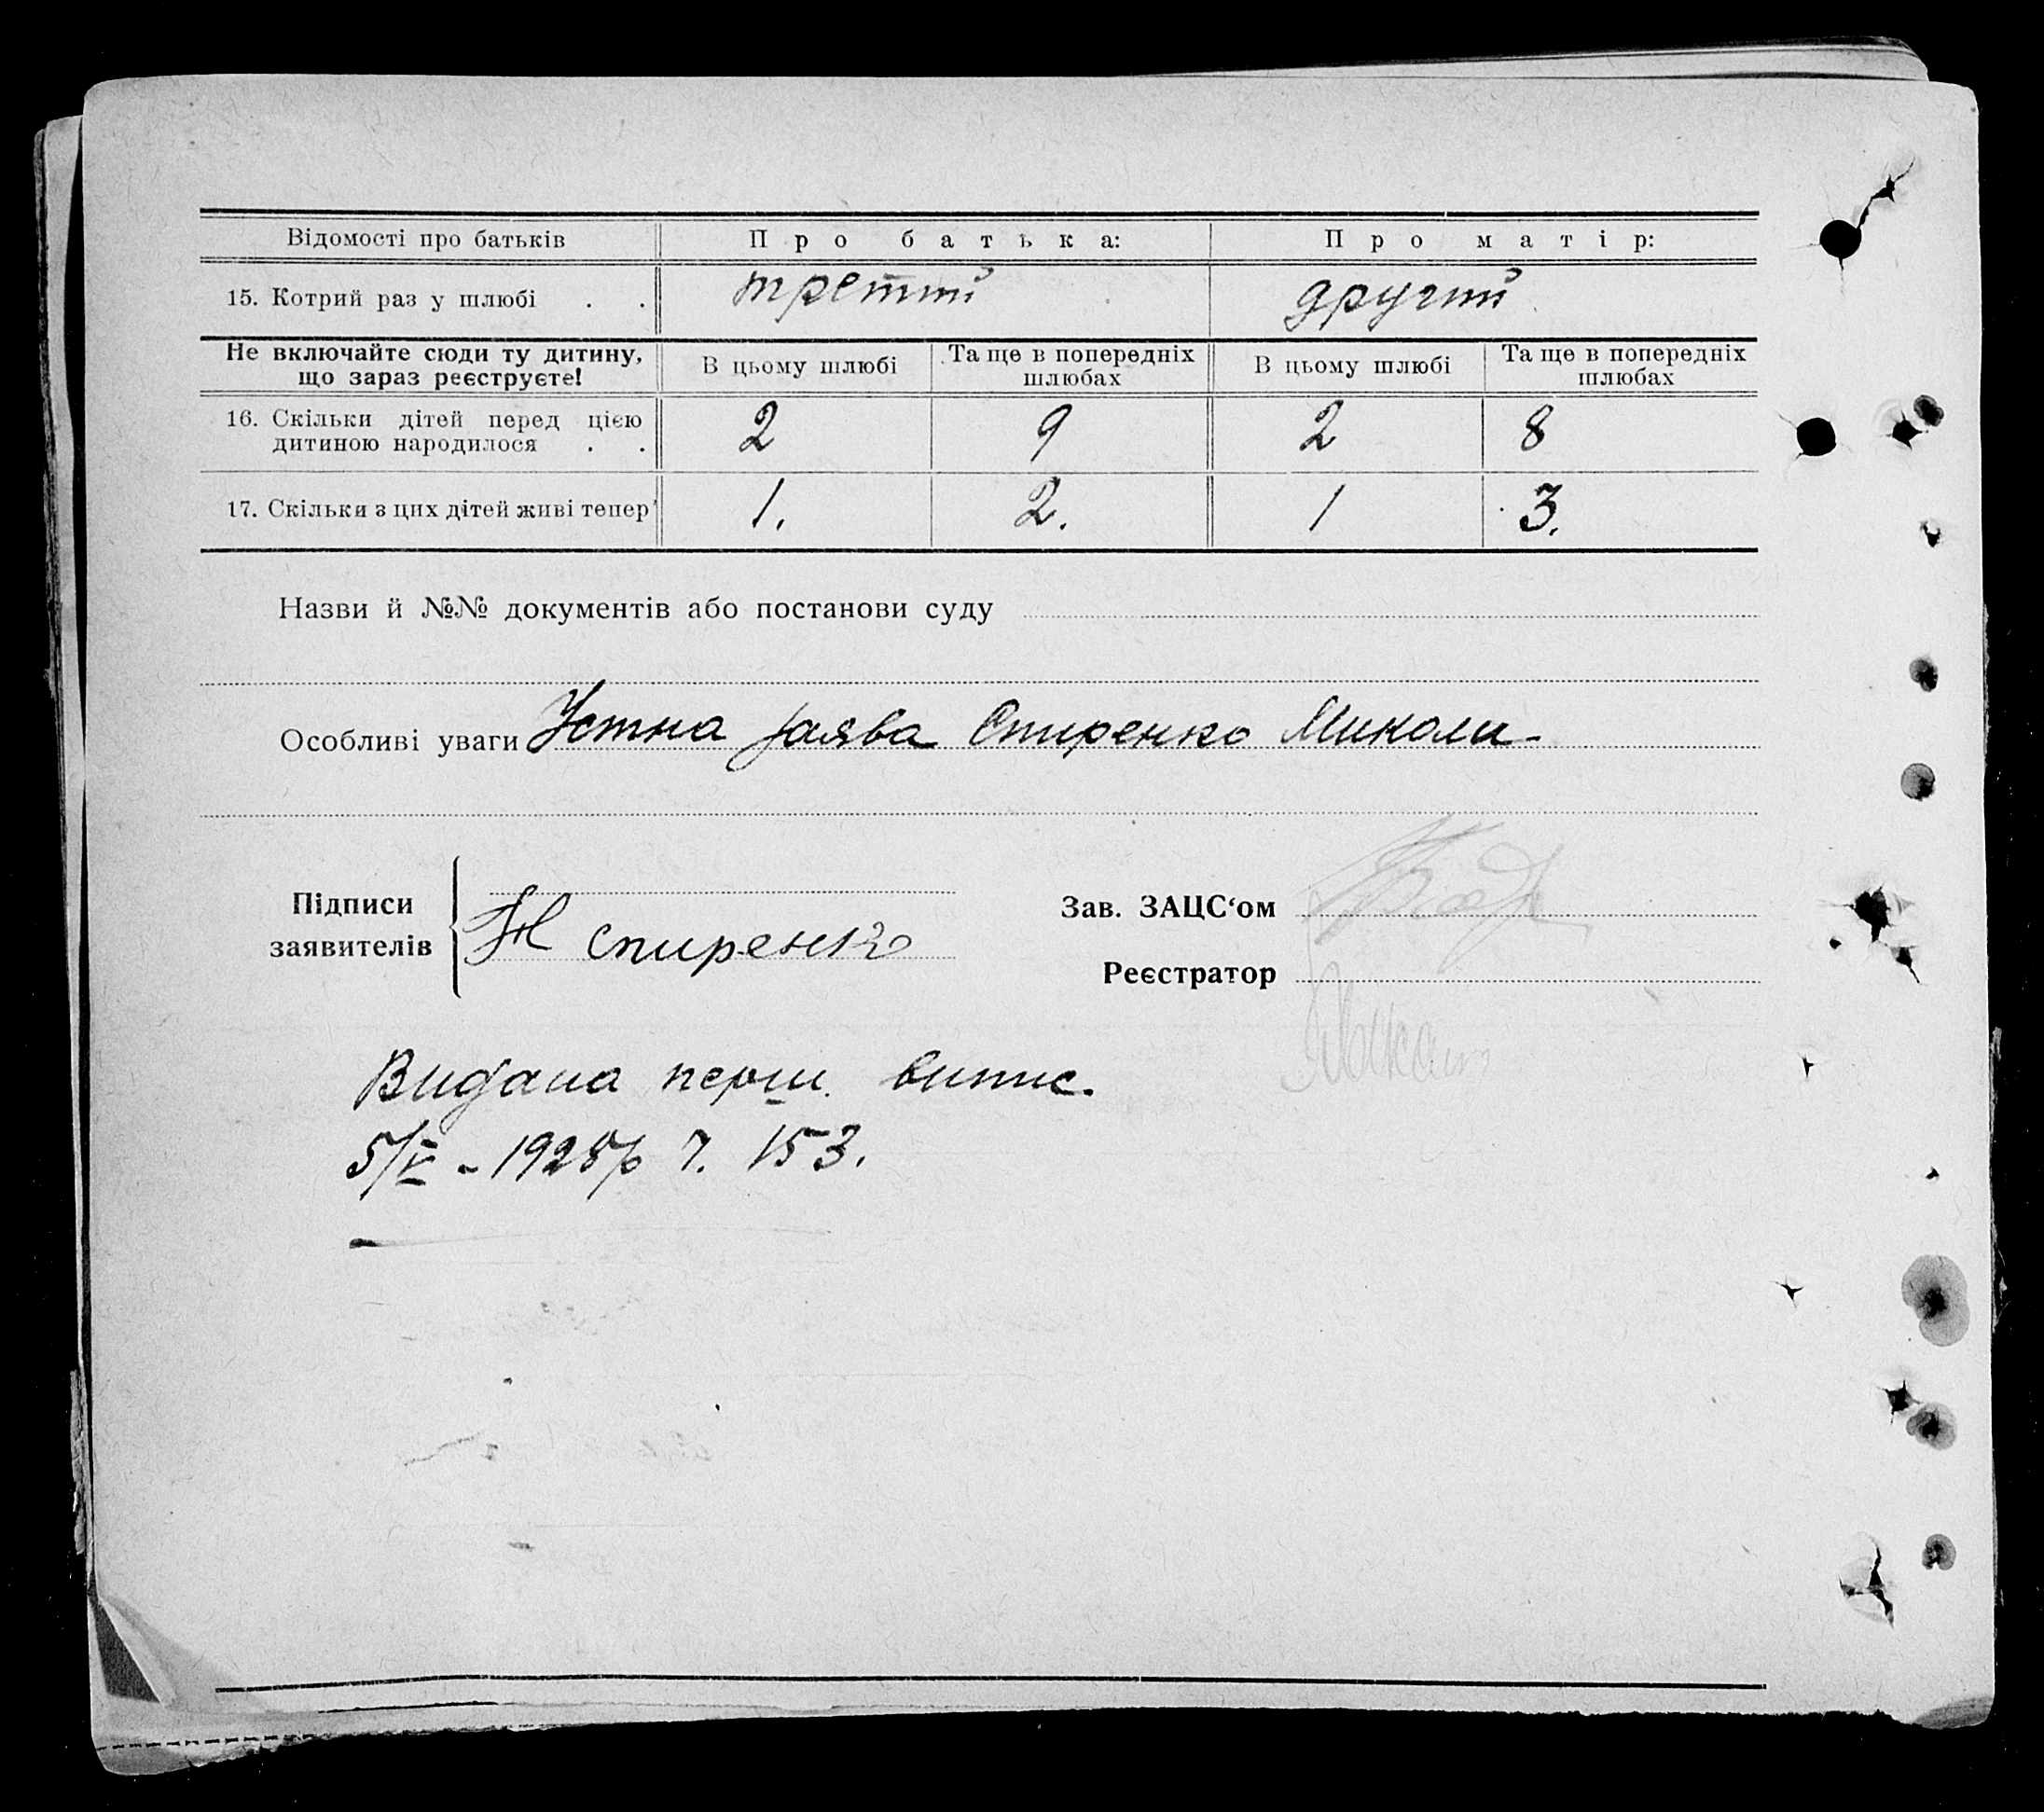 Відомості про батьків Про батька: Про матір:
15. Котрий раз у шлюбі . . третий другий
Не включайте сюди ту дитину, що зараз реєструєте! В цьому шлюбі Та ще в попередніх шлюбах В цьому шлюбі Та ще в попередніх шлюбах
16. Скільки дітей перед цією дитиною народилося . . 2 9 2 8
17. Скільки з цих дітей живі тепер 1. 2. 1 3.
Назви й №№ документів або постанови суду
Особливі уваги Устна заява Спиренко Миколи
Підписи заявителів Н Спиренко
Зав. ЗАЦС‘ом
Реєстратор
Видана перш. випис.
5/V - 1928р ч. 153.